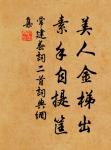 美人金梯出
素手自提筐
常建春詞二首詞典網
集